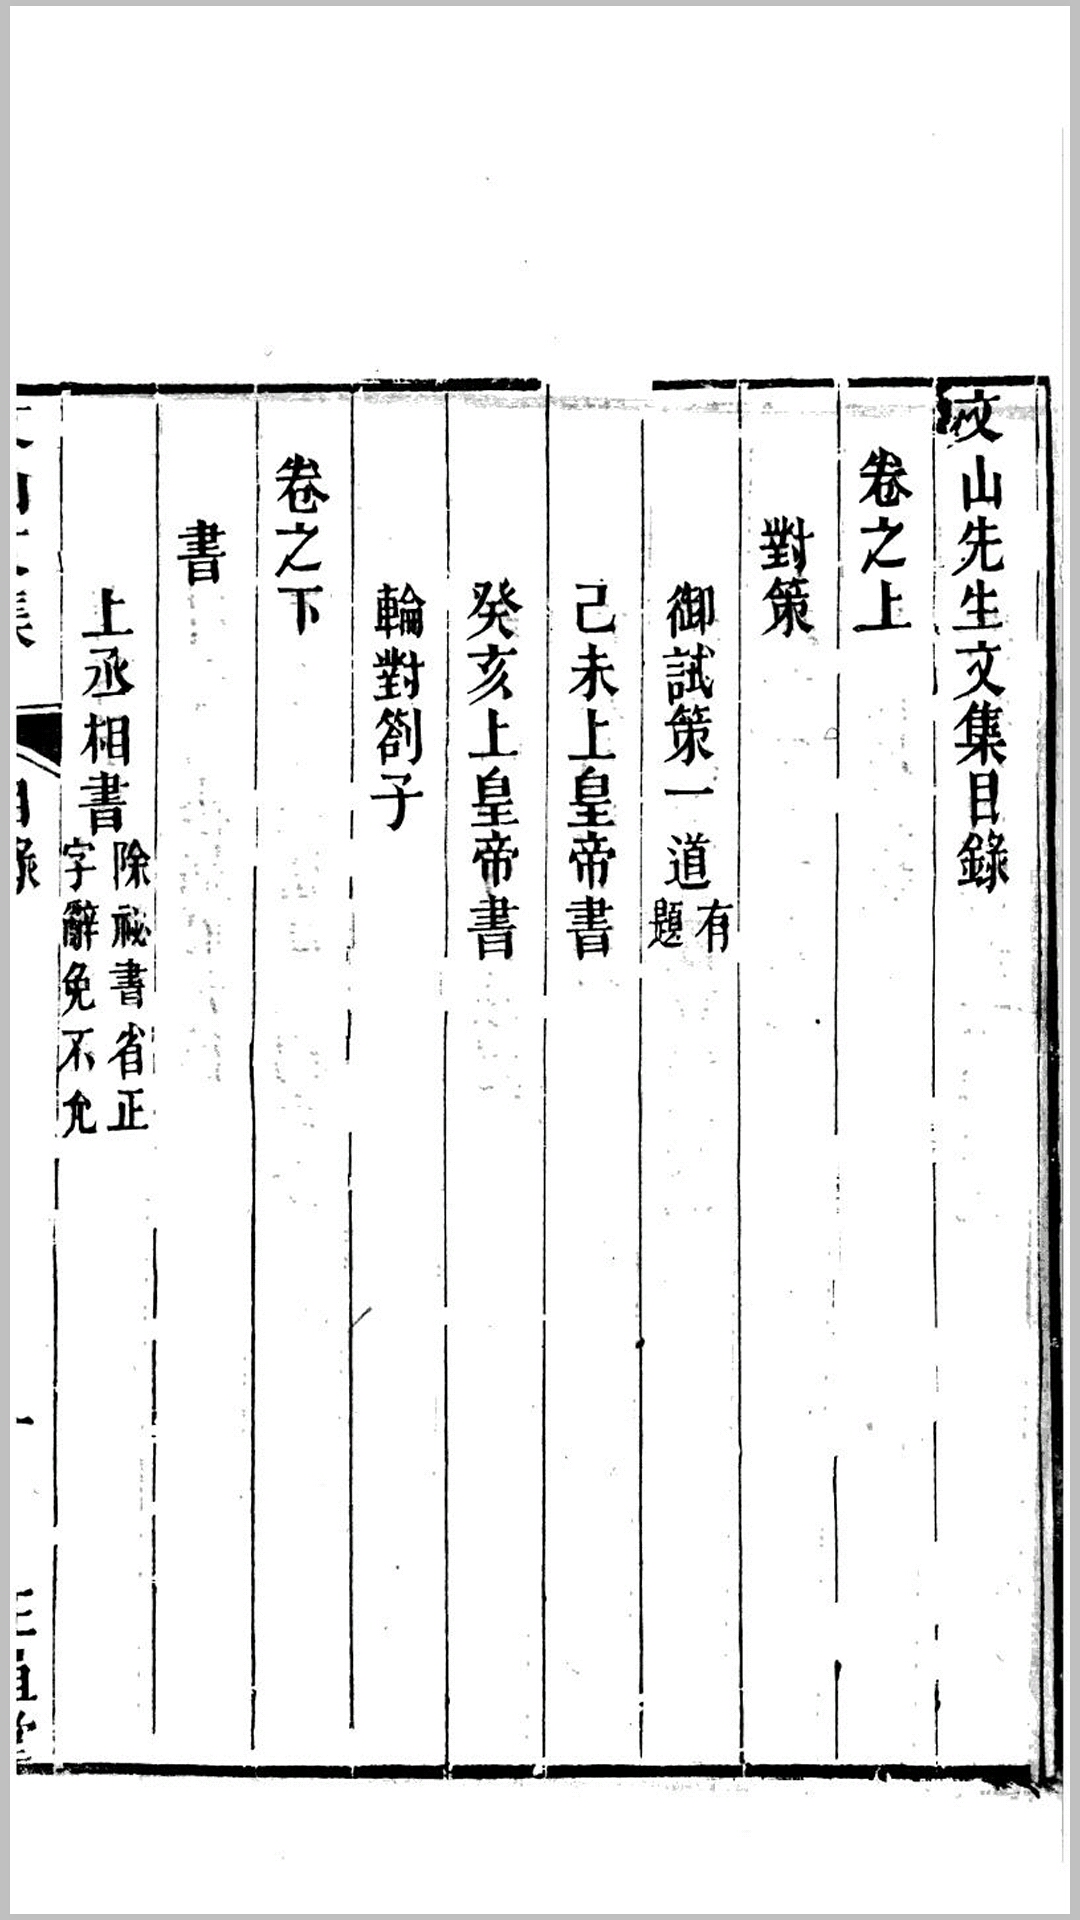 文山先生文集目錄
卷之上
對策
御試策一道有題
己未上皇帝書
癸亥上皇帝書
輪對劄子
卷之下
書
上丞相書除祕書省正字辭免不允
目錄
一